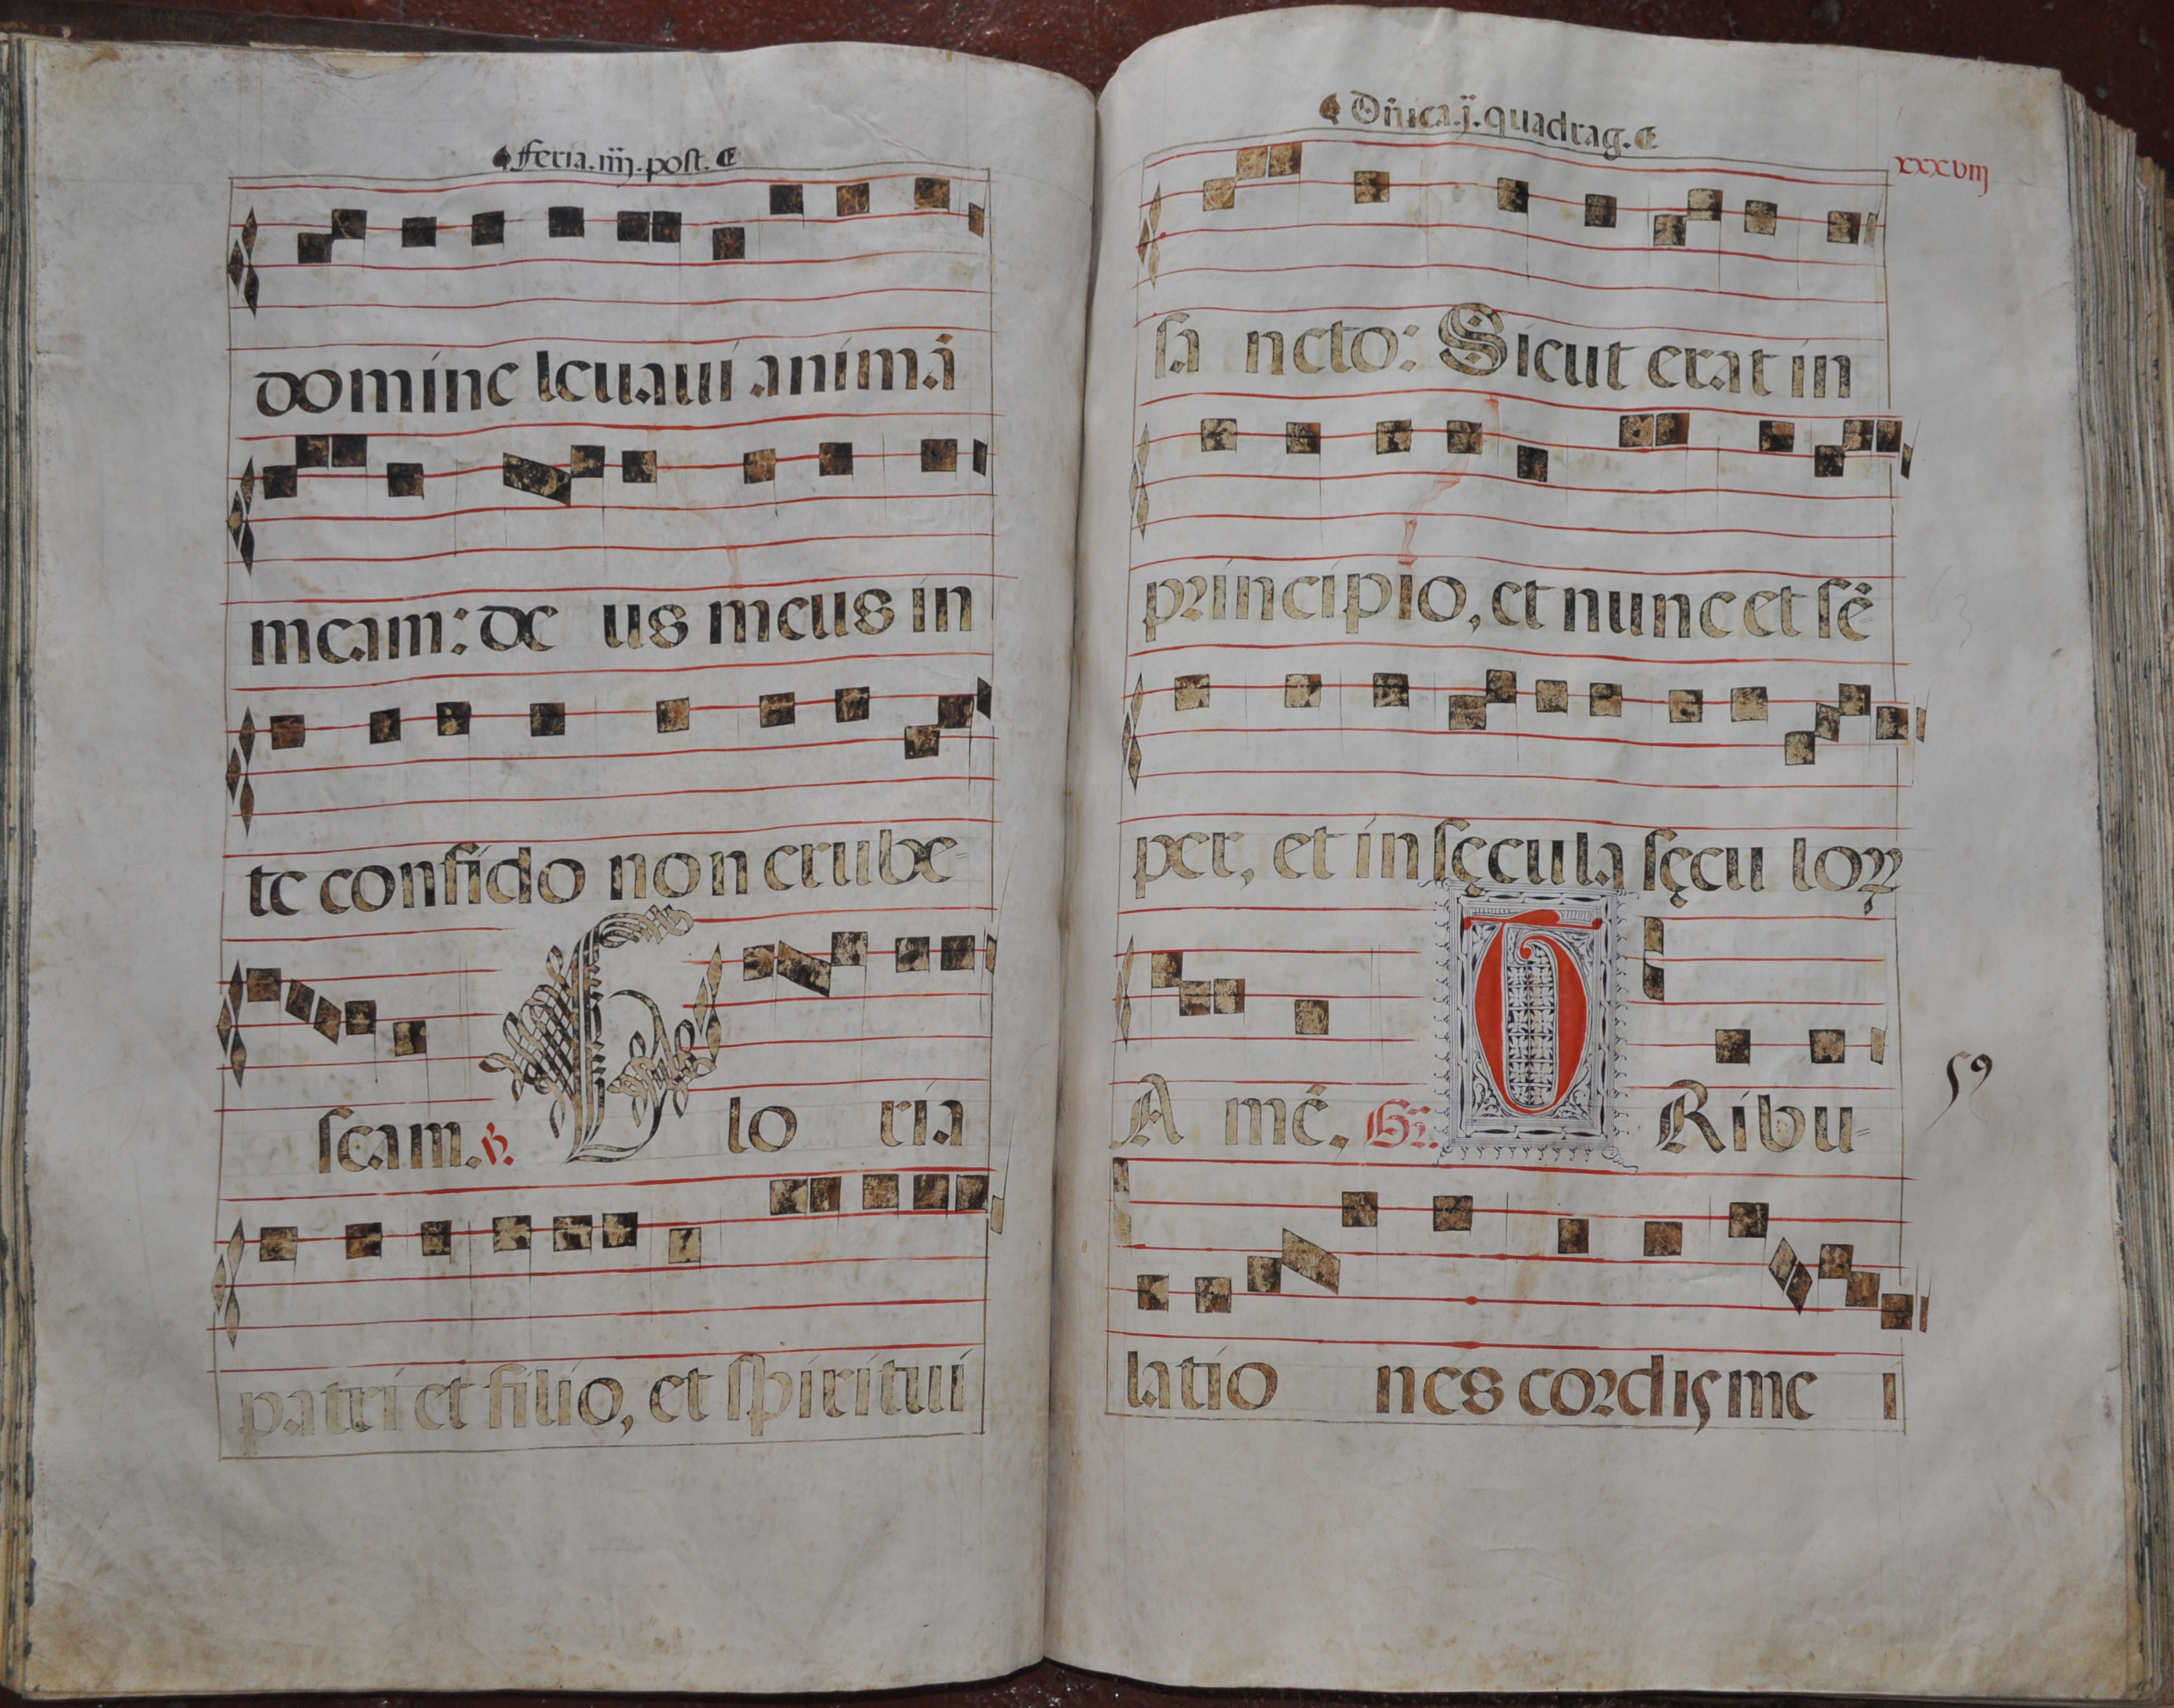 fferia.iiij.post.
domine leuaui animā
meam: de us meus in
te confido non erube=
scam. ℣. Glo ria
patri et filio, et spiritui
Dñica.ij.quadrag.
xxxviij
sa ncto: Sicut erat in
principio, et nunc et sē=
per, et in sęcula sęcu loꝝ
A mē. Gr. TRibu=
59
latio nes cordis me i